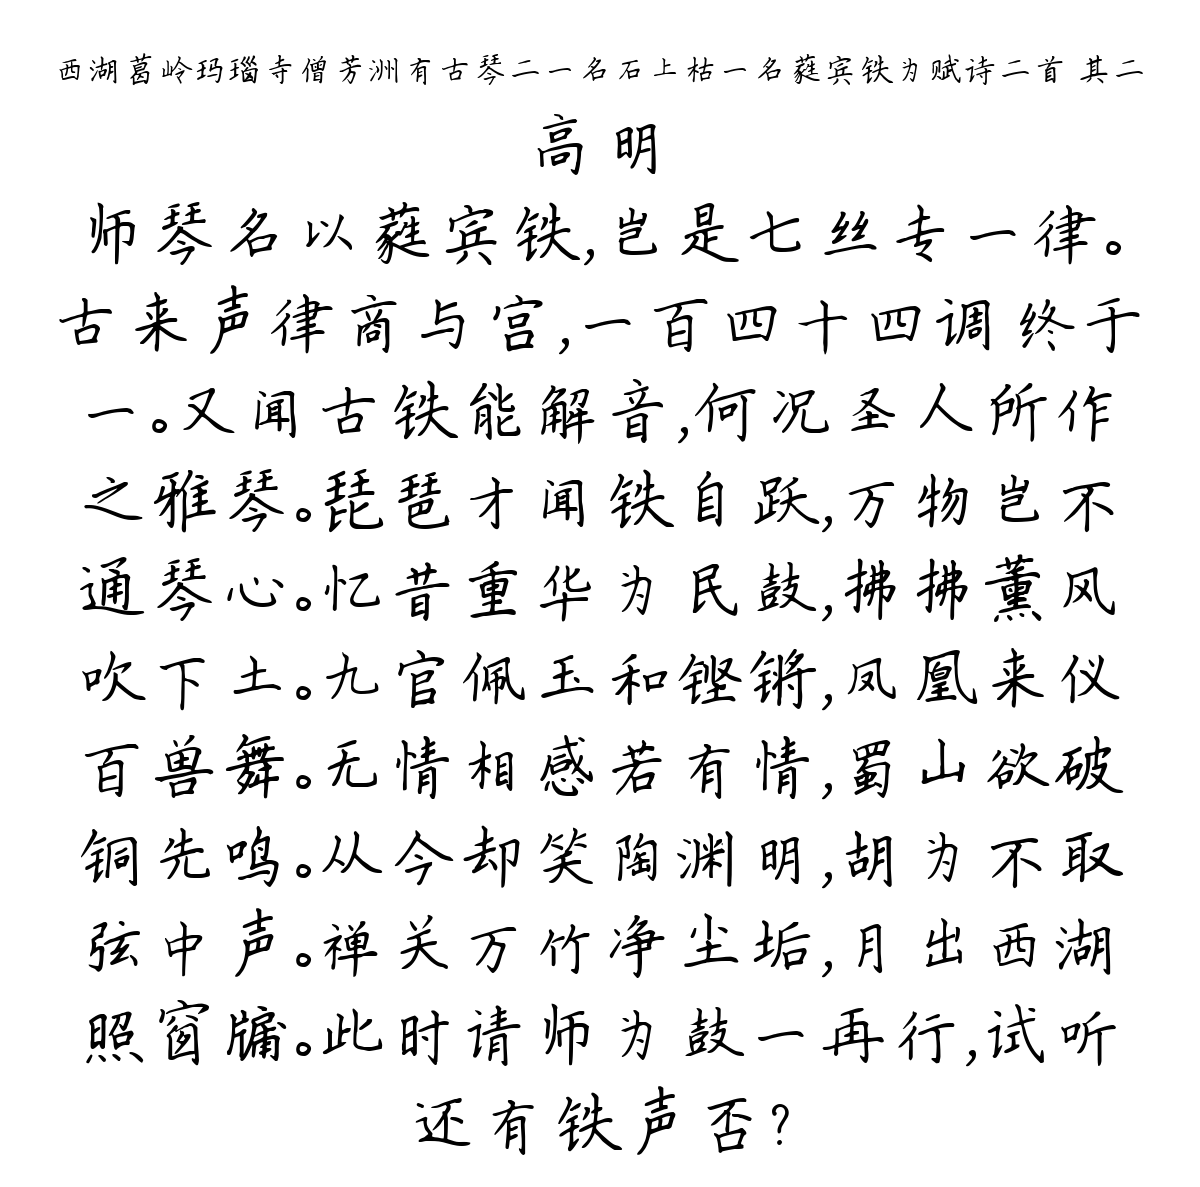 西湖葛岭玛瑙寺僧芳洲有古琴二一名石上枯一名蕤宾铁为赋诗二首 其二
高明
师琴名以蕤宾铁,岂是七丝专一律。
古来声律商与宫,一百四十四调终于
一。又闻古铁能解音,何况圣人所作
之雅琴。琵琶才闻铁自跃,万物岂不
通琴心。忆昔重华为民鼓,拂拂薰风
吹下土。九官佩玉和铿锵,凤凰来仪
百兽舞。无情相感若有情,蜀山欲破
铜先鸣。从今却笑陶渊明,胡为不取
弦中声。禅关万竹净尘垢,月出西湖
照窗牖。此时请师为鼓一再行,试听
还有铁声否?